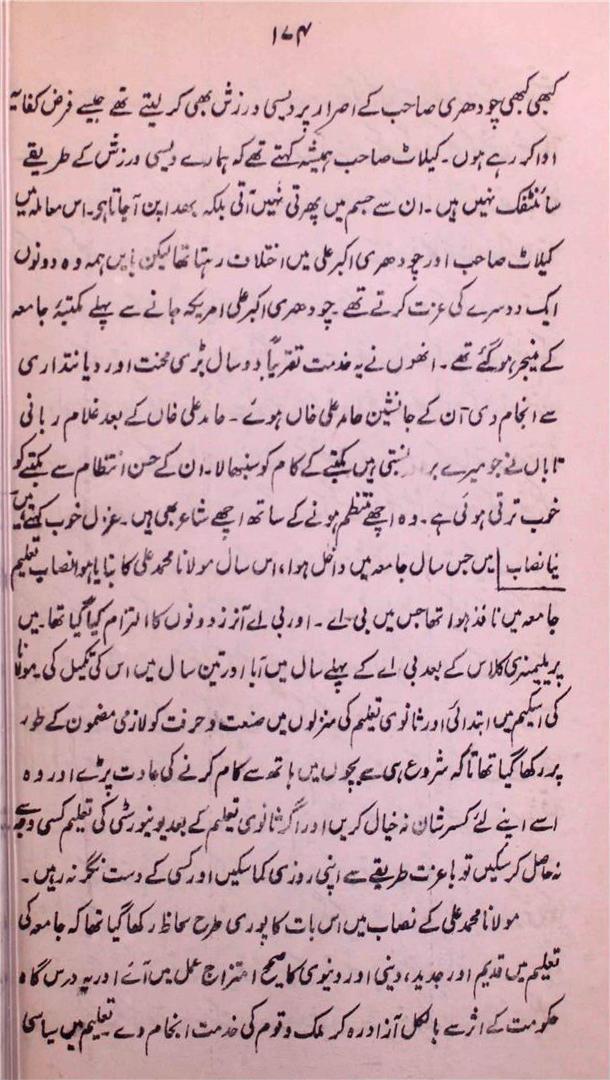 ۱۷۴
کبھی کبھی چودھری صاحب کے اصرار پر دیسی ورزش بھی کر لیتے تھے جیسے فرض کفایہ
ادا کر رہے ہوں۔ کیلاٹ صاحب ہمیشہ کہتے تھے کہ ہمارے دیسی ورزش کے طریقے
سائنٹفک نہیں ہیں۔ ان سے جسم میں پھرتی نہیں آتی بلکہ بھدا پن آ جاتا ہو۔ اس معاملہ میں
کیلاٹ صاحب اور چودھری اکبر علی میں اختلاف رہتا تھا لیکن بایں ہمہ وہ دونوں
ایک دوسرے کی عزت کرتے تھے۔ چودھری اکبر علی امریکہ جانے سے پہلے مکتبۂ جامعہ
کے منیجر ہو گئے تھے۔ انھوں نے یہ خدمت تقریباً دو سال بڑی محنت اور دیانتداری
سے انجام دی اُن کے جانشین حامد علی خاں ہوئے۔ حامد علی خاں کے بعد غلام ربانی
تاباں نے جو میرے برادر نسبتی ہیں مکتبے کے کام کو سنبھالا۔ ان کے حسن انتظام سے مکتبے کو
خوب ترقی ہوئی ہے۔ وہ اچھے منتظم ہونے کے ساتھ اچھے شاعر بھی ہیں۔ غزل خوب کہتے ہیں
نیا نصاب میں جس سال جامعہ میں داخل ہوا، اس سال مولانا محمد علی کا بنایا ہوا نصاب تعلیم
جامعہ میں نافذ ہوا تھا جس میں بی۔اے۔ اور بی اے آنرز دونوں کا التزام کیا گیا تھا۔ میں
پریلیمنری کلاس کے بعد بی اے کے پہلے سال میں آیا اور تین سال میں اس کی تکمیل کی۔ مولانا
کی اسکیم میں ابتدائی اور ثانوی تعلیم کی منزلوں میں صنعت و حرفت کو لازمی مضمون کے طور
پر رکھا گیا تھا تاکہ شروع ہی سے بچوں میں ہاتھ سے کام کرنے کی عادت پڑے اور وہ
اسے اپنے لئے کسر شان نہ خیال کریں اور اگر ثانوی تعلیم کے بعد یونیورسٹی کی تعلیم کسی وجہ سے
نہ حاصل کر سکیں تو با عزت طریقے سے اپنی روزی کما سکیں اور کسی کے دست نگر نہ رہیں۔
مولانا محمد علی کے نصاب میں اس بات کا پوری طرح لحاظ رکھا گیا تھا کہ جامعہ کی
تعلیم میں قدیم اور جدید، دینی اور دنیوی کا صحیح امتزاج عمل میں آئے اور یہ درس گاہ
حکومت کے اثر سے بالکل آزاد رہ کر ملک و قوم کی خدمت انجام دے تعلیم میں سیاسی